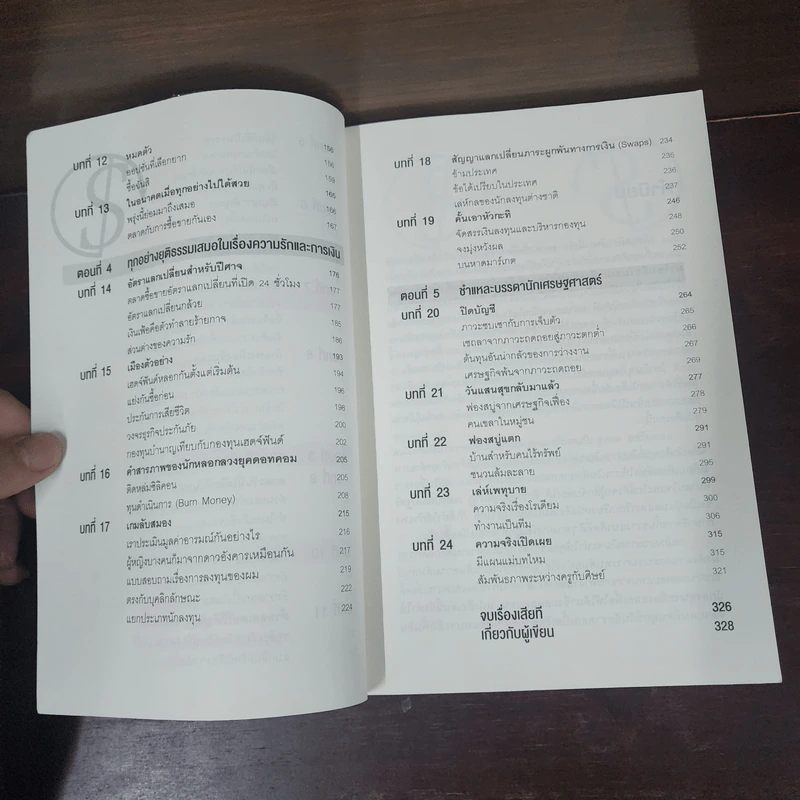 บทที่ 12 หมดตัว 156
ออปชันที่เลือกยาก 156
ซื้อฉันสิ 159
บทที่ 13 ในอนาคตเมื่อทุกอย่างไปได้สวย 165
พรุ่งนี้ย่อมมาถึงเสมอ 165
ตลาดกับการซื้อขายกันเอง 167
ตอนที่ 4 ทุกอย่างยุติธรรมเสมอในเรื่องความรักและการเงิน
บทที่ 14 อัตราแลกเปลี่ยนสำหรับปีศาจ 176
ตลาดซื้อขายอัตราแลกเปลี่ยนที่เปิด 24 ชั่วโมง 177
อัตราแลกเปลี่ยนกล้วย 177
เงินเฟ้อคือตัวทำลายร้ายกาจ 185
ส่วนต่างของความรัก 186
บทที่ 15 เมืองตัวอย่าง 193
เฮดจ์ฟันด์หลอกกันตั้งแต่เริ่มต้น 194
แย่งกันซื้อก่อน 196
ประกันการเสียชีวิต 196
วงจรธุรกิจประกันภัย 200
กองทุนบำนาญเทียบกับกองทุนเฮดจ์ฟันด์ 202
บทที่ 16 คำสารภาพของนักหลอกลวงยุคดอทคอม 205
ติดหล่มซิลิคอน 205
ทุนดำเนินการ (Burn Money) 208
บทที่ 17 เกมลับสมอง 215
เราประเมินมูลค่าอารมณ์กันอย่างไร 216
ผู้หญิงบางคนก็มาจากดาวอังคารเหมือนกัน 217
แบบสอบถามเรื่องการลงทุนของผม 221
ตรงกับบุคลิกลักษณะ 222
แยกประเภทนักลงทุน 224
บทที่ 18 สัญญาแลกเปลี่ยนภาระผูกพันทางการเงิน (Swaps) 234
ข้ามประเทศ 235
ข้อได้เปรียบในประเทศ 236
เล่ห์กลของนักลงทุนต่างชาติ 237
บทที่ 19 คั้นเอาหัวกะทิ 246
จัดสรรเงินลงทุนและบริหารกองทุน 248
จงมุ่งหวังผล 250
บนหาดมาร์เกต 252
ตอนที่ 5 ชำแหละบรรดานักเศรษฐศาสตร์
บทที่ 20 ปิดบัญชี 264
ภาวะซบเซากับการเจ็บตัว 265
เซถลาจากภาวะถดถอยสู่ภาวะตกต่ำ 266
ต้นทุนอันน่ากลัวของการว่างงาน 267
เศรษฐกิจพ้นจากภาวะถดถอย 269
บทที่ 21 วันแสนสุขกลับมาแล้ว 277
ฟองสบู่จากเศรษฐกิจเฟื่อง 278
คนเขลาในหมู่ชน 279
บทที่ 22 ฟองสบู่แตก 291
บ้านสำหรับคนไร้ทรัพย์ 291
ชนวนล้มละลาย 295
บทที่ 23 เล่ห์เพทุบาย 299
ความจริงเรื่องโรเดียม 300
ทำงานเป็นทีม 306
บทที่ 24 ความจริงเปิดเผย 315
มีแผนแม่บทไหม 315
สัมพันธภาพระหว่างครูกับศิษย์ 321
จบเรื่องเสียที 326
เกี่ยวกับผู้เขียน 328